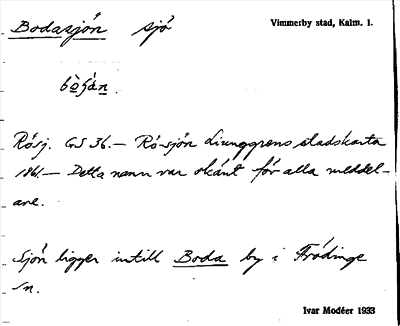 Bodasjön sjö Vimmerby stad, Kalm. l.
Rösj. GS 36. — Rö-sjön Ljunggrens stadskarta
1861 — Detta namn var okänt för alla meddel-
are.
Sjön ligger intill Boda by i Frödinge
sn.
Ivar Modéer 1933